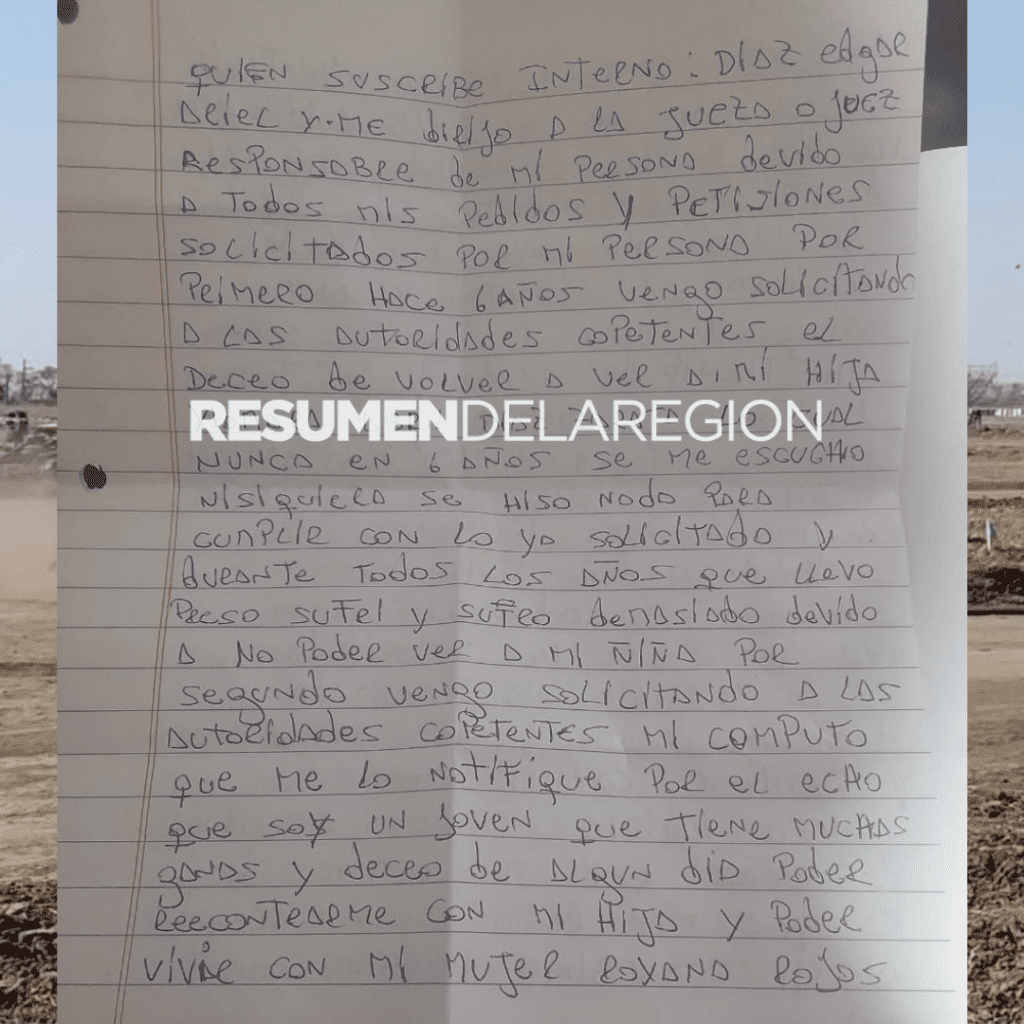 QUIEN SUSCRIBE INTERNO: DIAZ EdgAR
ARIEL Y·ME diRIJO A LA JUEZA O JUEZ
RESPONSABLE de MI PERSONA devido
A TODOS MIS PEDIDOS Y PETISIONES
SOLICITADOS POR MI PERSONA POR
PRIMERO HACE 6 AÑOS VENGO SOLICITANDO
A LAS AUTORIDADES COPETENTES EL
DECEO de VOLVER A VER A.MI HIJA
RESUMENDELAREGION
NUNCA EN 6 AÑOS SE ME ESCUCHO
NISIQUIERA SE HISO NADA PARA
CUNPLIR CON LO YA SOLICITADO Y
DURANTE TODOS LOS AÑOS QUE LLEVO
PRESO SUFRI Y SUFRO DEMASIADO devido
A NO PODER VER A MI ÑIÑA POR
SEGUNDO VENGO SOLICITANDO A LAS
AUTORIDADES COPETENTES MI COMPUTO
QUE ME LO NOTIFIQUE POR EL ECHO
QUE SOY UN JOVEN QUE TIENE MUCHAS
GANAS Y DECEO DE ALGUN DIA PODER
REECONTRARME CON MI HIJA Y PODER
VIVIR CON MI MUJER ROXANA ROJAS